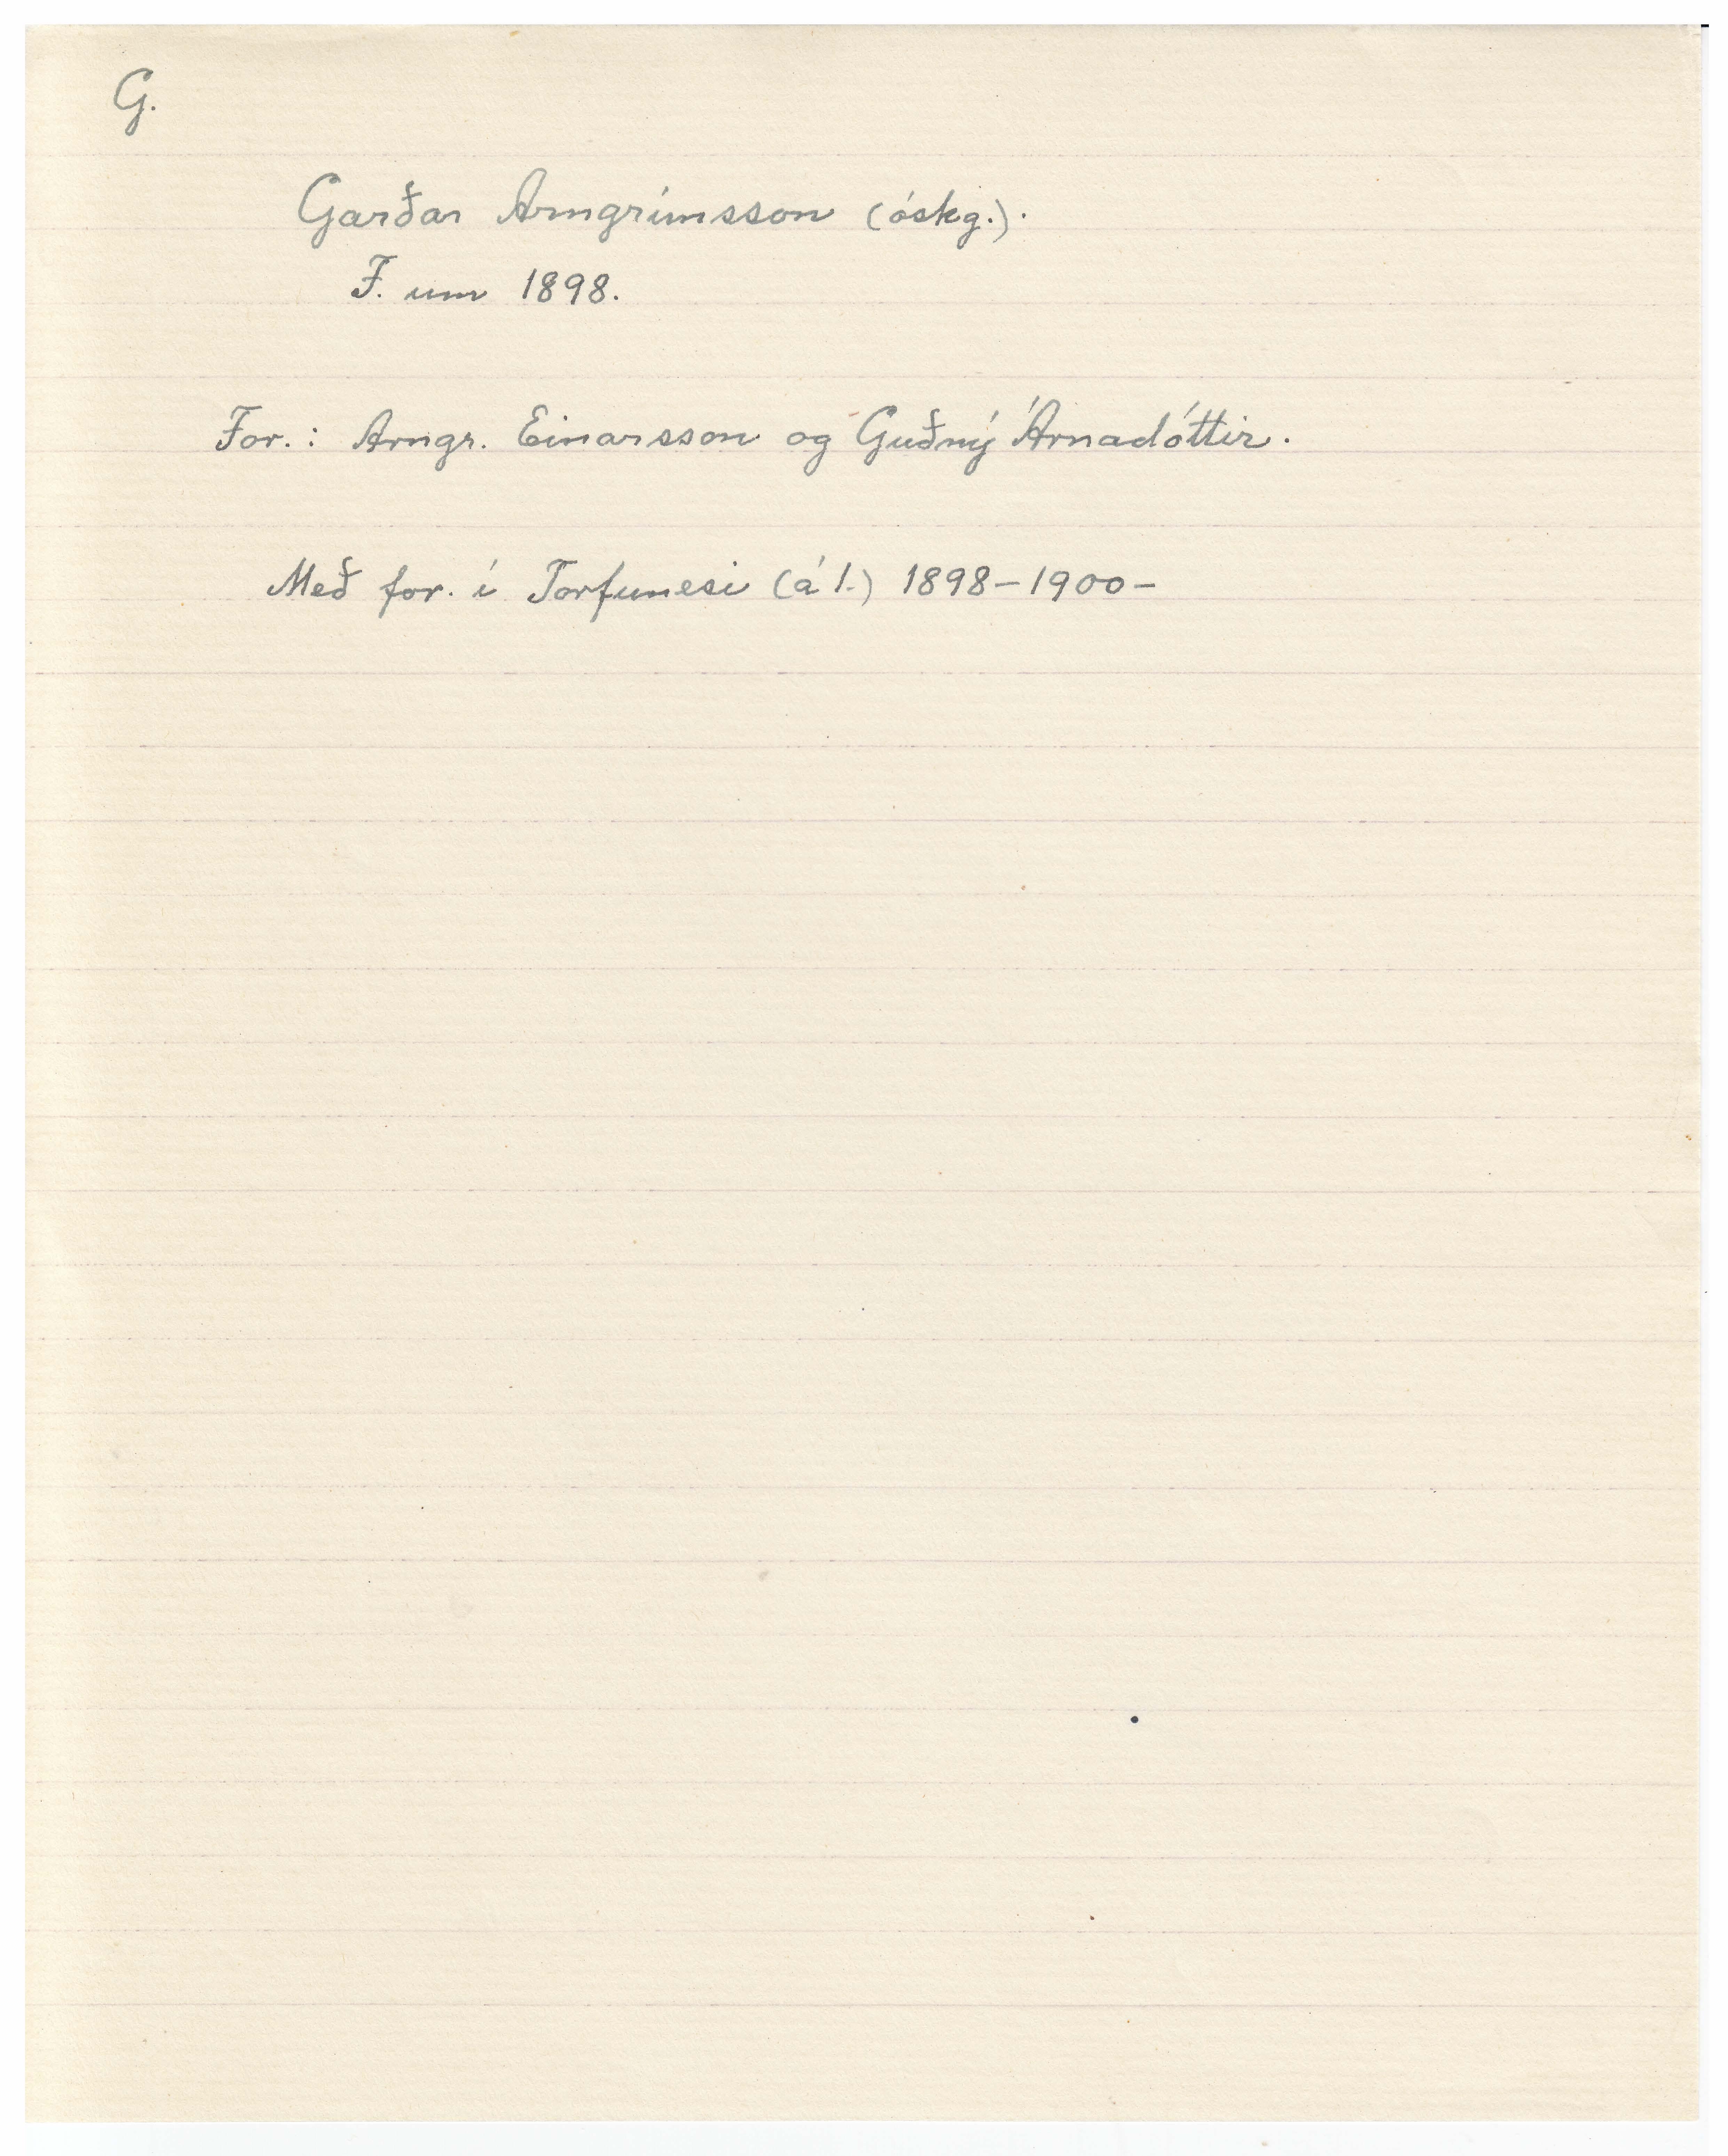 G.
Garðar Arngrímsson (óskg.).
F. um 1898.
For.: Arngr. Einarsson og Guðný Árnadóttir.
Með for. í Torfunesi (á l.) 1898-1900-